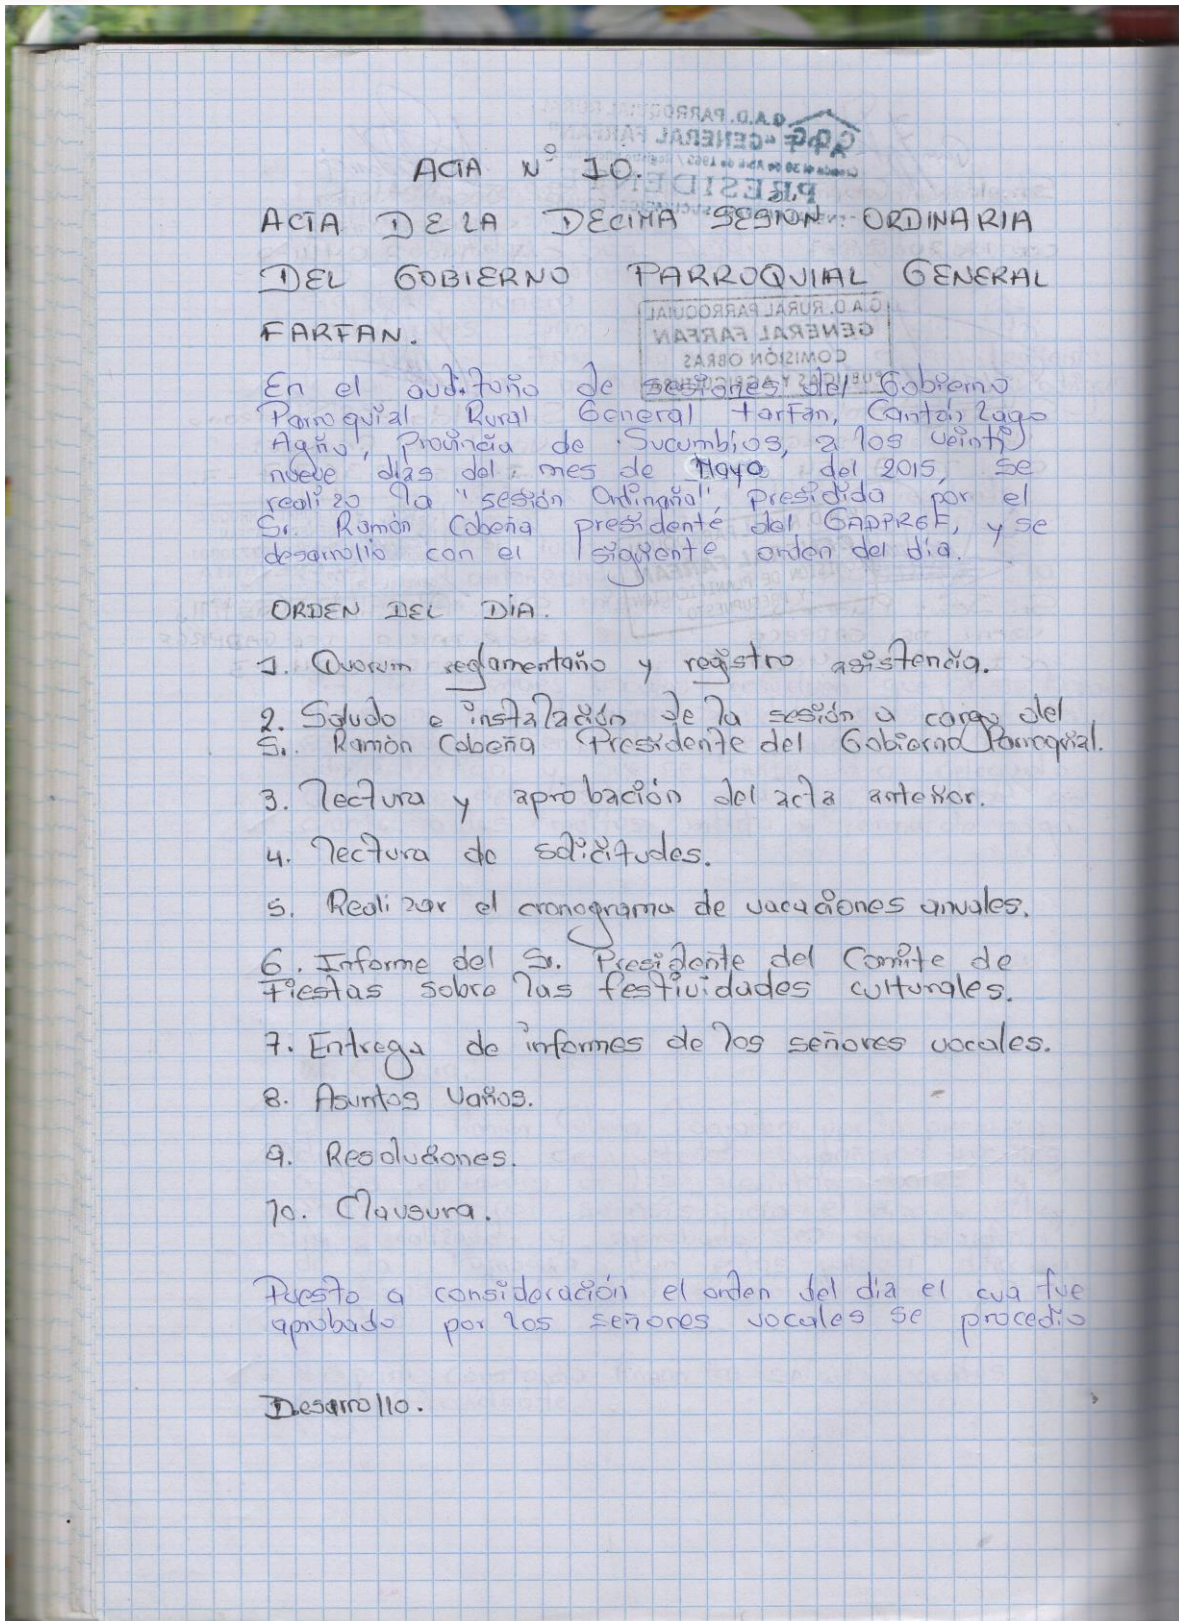 ACTA N° 10.
ACTA DE LA DECIMA SESION ORDINARIA
DEL GOBIERNO PARROQUIAL GENERAL
FARFAN.
En el auditorio de sesiones del Gobierno
Parroquial Rural General Farfan, Cantón Lago
Agrio, Provincia de Sucumbios, a los veinti
nueve dias del mes de Mayo del 2015, se
realizo la "sesión Ordinaria", presidida por el
Sr. Ramón Cobeña presidente del GADPRGF, y se
desarrollo con el siguiente orden del dia.
ORDEN DEL DIA.
1. Quorum reglamentario y registro asistencia.
2. Saludo e instalación de la sesión a cargo del
Sr. Ramón Cobeña Presidente del Gobierno Parroquial.
3. lectura y aprobación del acta anterior.
4. lectura de solicitudes.
5. Realizar el cronograma de vacaciones anuales.
6. Informe del Sr. Presidente del Comite de
Fiestas sobre las festividades culturales.
7. Entrega de informes de los señores vocales.
8. Asuntos Varios.
9. Resoluciones.
10. Clausura.
Puesto a consideración el orden del dia el cua fue
aprobado por los señores vocales se procedio
Desarrollo.
G.A.D. PARROQUIAL RURAL
"GENERAL FARFAN"
PRESIDENTE
G.A.D. RURAL PARROQUIAL
GENERAL FARFAN
COMISIÓN OBRAS